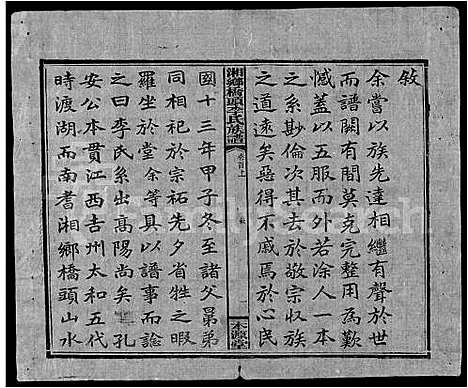 敘
余嘗以族先達相繼有聲於世
而譜闕有間莫克完整用為歎
憾蓋以五服而外若涂人一本
之系尠倫次其去於敬宗收族
之道遠矣惡得不戚焉於心民
湘鄉橋頭李氏族譜
卷首上
敘
本源堂
國十三年甲子冬至諸父晜弟
同相祀於宗祏先夕省牲之暇
羅坐於堂余等具以譜事而諗
之曰李氏系出高陽尚矣 孔
安公本貫江西吉州太和五代
時渡湖而南耆湘鄉橋頭山水